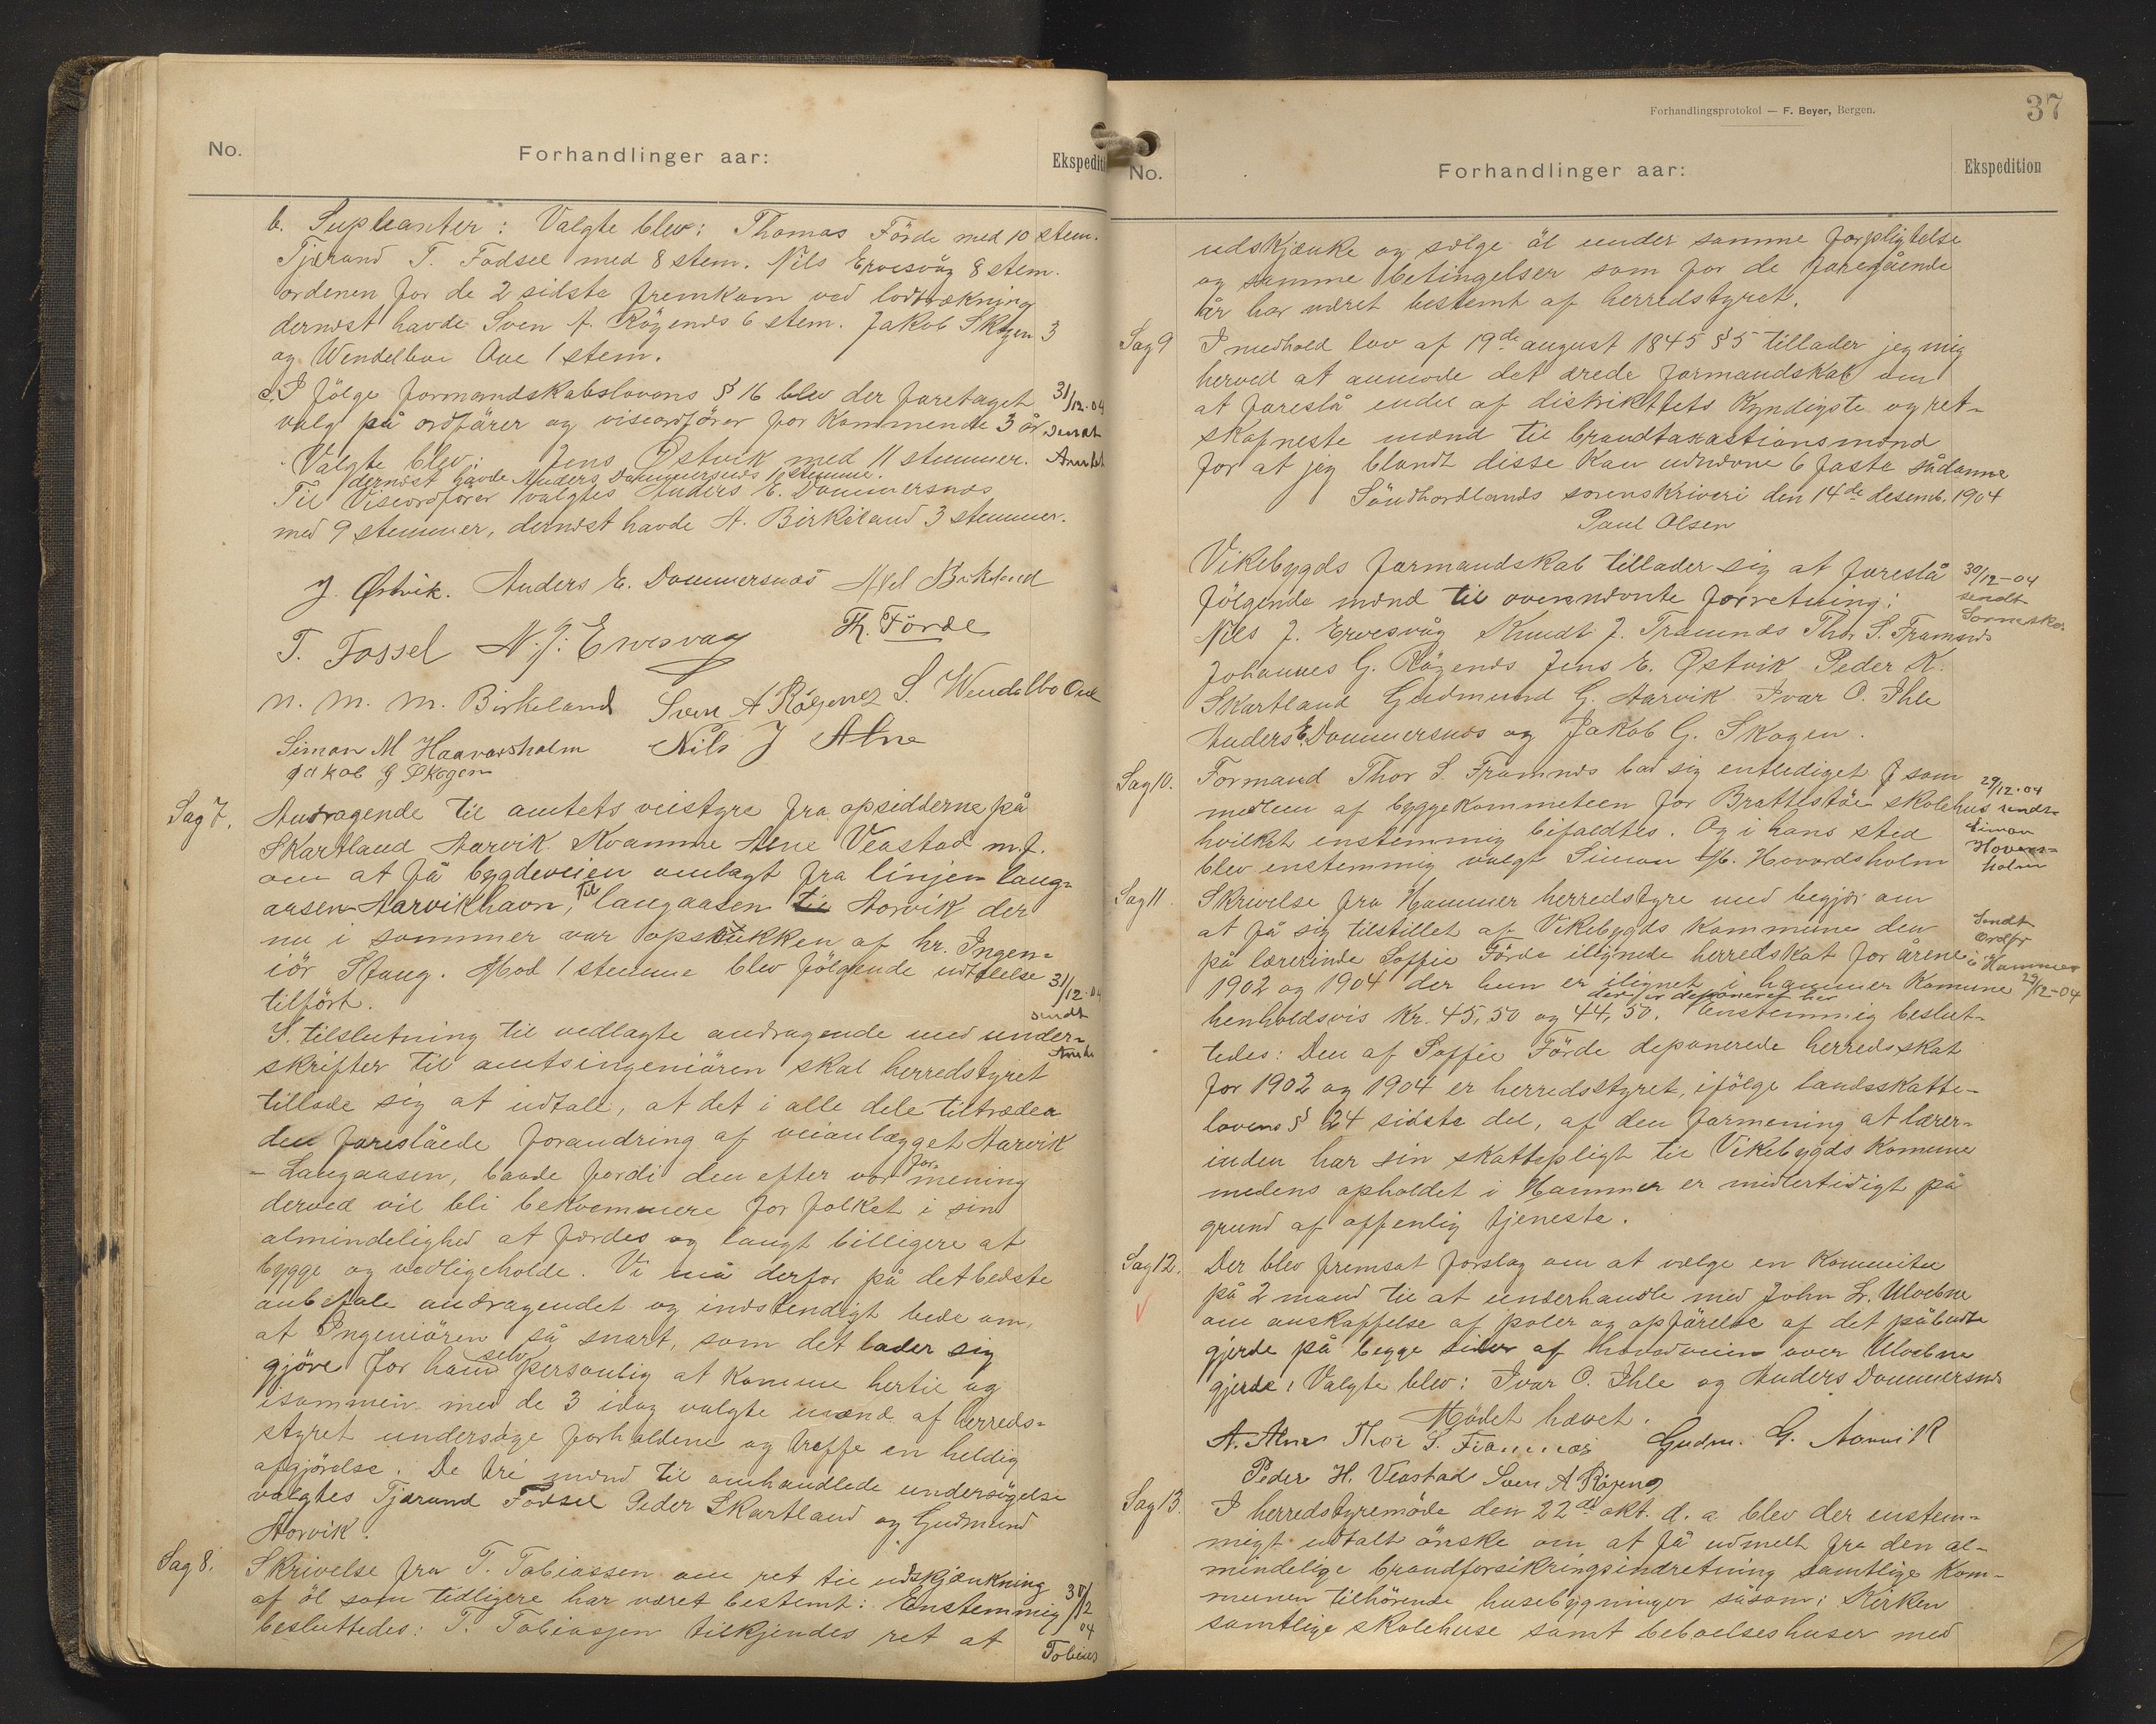 No.
Forhandlinger aar:
b. Supleanter: Valgte blev: Thomas Förde med 10 stem.
Tjærand T. Fodsel med 8 stem. Nils Ervesvåg 8 stem.
ordenen for de 2 sidste fremkom ved lodtrækning
dernæst havde Sven A. Rögenes 6 stem. Jakob Skogen 3
og Wendelboe Aue 1 stem.
c. I fölge formandskabslovens § 16 blev der foretaget 31/12-04
valg på ordförer og viseordförer for kommende 3 år sendt
Valgte blev: Jens Østvik med 11 stemmer. Amtet
dernæst havde Anders Dommersnæs 1 stemme.
Til Viseordförer valgtes Anders E. Dommersnæs
med 9 stemmer, dernæst havde A. Birkeland 3 stemmer.
J. Østvik. Anders E. Dommersnæs Birkeland
T. Fossel N. J. Ervesvag Th. Förde
N. M. M. Birkeland Sven A Rögenes S. Wendelbo Aue
Simon M Haavarsholm Nils J Alne
Jakob G Skogen
Sag 7. Andragende til amtets veistyre fra opsidderne på
Skartland Aarvik Kvamme Alne Veastad m.f.
om at få bygdeveien omlagt fra linjen lang-
aasen-Aarvikhavn, til langaasen til Aorvik der
nu i sommer var opstukken af hr. Ingen-
iör Stang. Mod 1 stemme blev fölgende udtalelse 31/12-04
tilfört. sendt
I tilslutning til vedlagte andragende med under-
skrifter til amtsingeniören skal herredstyret
tillade sig at udtale, at det i alle dele tiltræder
den foreslåede forandring af veianlægget Aarvik
- Langaasen, baade fordi den efter vor for mening
derved vil bli bekvemmere for folket i sin
almindelighed at færdes og langt billigere at
bygge og vedligeholde. Vi må derfor på det bedste
anbefale andragendet og indstendigt bede om,
at Ingeniören så snart, som det lader sig
gjöre for ham selv personlig at komme hertil og
isammen med de 3 idag valgte mænd af herreds-
styret undersöge forholdene og treffe en heldig
afgjörelse. De tre mænd til omhandlede undersögelse
valgtes Tjærand Fodsel Peder Skartland og Gudmund
Aorvik.
Sag 8. Skrivelse fra T. Tobiassen om ret til udskjænkning
af öl som tidligere har været bestemt: Enstemmig
besluttedes: T. Tobiassen tilkjendes ret at
Forhandlingsprotokol — F. Beyer, Bergen.
37
No.
Forhandlinger aar:
Ekspedition
udskjænke og sælge öl under samme forpligtelse
og samme betingelser som for de foregående
år har været bestemt af herredstyret.
Sag 9 I medhold lov af 19de august 1845 § 5 tillader jeg mig
herved at anmode det ærede formandskab om
at foreslå endel af distriktets kyndigste og ret-
skafneste mænd til brandtaxastionsmænd
for at jeg blandt disse kan udnævne 6 faste sådanne
Söndhordlands sorenskriveri den 14de desemb. 1904
Paul Olsen
Vikebygds formandskab tillader sig at foreslå 30/12-04
fölgende mænd til ovennævnte forretning: sendt
Nils J. Ervesvåg Knudt J. Framnæs Thor S. Framnæs
Johannes G. Rögenes Jens E. Østvik Peder K.
Skartland Gudmund G. Aarvik Ivar O. Ihle
Anders E. Dommersnæs og Jakob G. Skogen.
Sag 10. Formand Thor S. Framnæs bad sig entlediget som 29/12-04
medlem af byggekommeteen for Brattestöe skolehus sendt
hvilket enstemmig bifaldtes. Og i hans sted Simon
blev enstemmig valgt Simon M. Hovardsholm Hovards-
holm
Sag 11. Skrivelse fra Hammer herredstyre med begjær om
at få sig tilstillet af Vikebygds kommune den Sendt
på lærerinde Soffie Förde ilignede herredskat for årene Ordfr
1902 og 1904 der hun er ilignet i hammer Komune i Hammer 29/12-04
der er deponeret her
henholdsvis Kr. 45,50 og 44,50. Enstemmig beslut-
tedes: Den af Soffie Förde deponerede herredsskat
for 1902 og 1904 er herredsstyret, ifölge landsskatte-
lovens § 24 sidste del, af den formening at lærer-
inden har sin skattepligt til Vikebygds Komune
medens opholdet i Hammer er midlertidigt på
grund af offenlig tjeneste.
Sag 12. Der blev fremsat forslag om at vælge en Kommite
på 2 mand til at underhandle med John L. Ulvebne
om anskaffelse af poler og opförelse af det påbudte
gjerde på begge sider af hovedveien over Ulvebne
gjerde, Valgte blev: Ivar O. Ihle og Anders Dommersnæs
Mödet hævet.
A. Alne Thor S. Framnæs Gudm. G. Aarvik
Peder H. Veastad Sven A Rögenes
Sag 13. I herredstyremöde den 22de okt. d. a. blev der enstem-
migt udtalt önske om at få udmelt fra den al-
mindelige brandforsikringsindretning samtlige kom-
munen tilhörende husebygninger såsom: Kirken
samtlige skolehuse samt beboelseshuser med